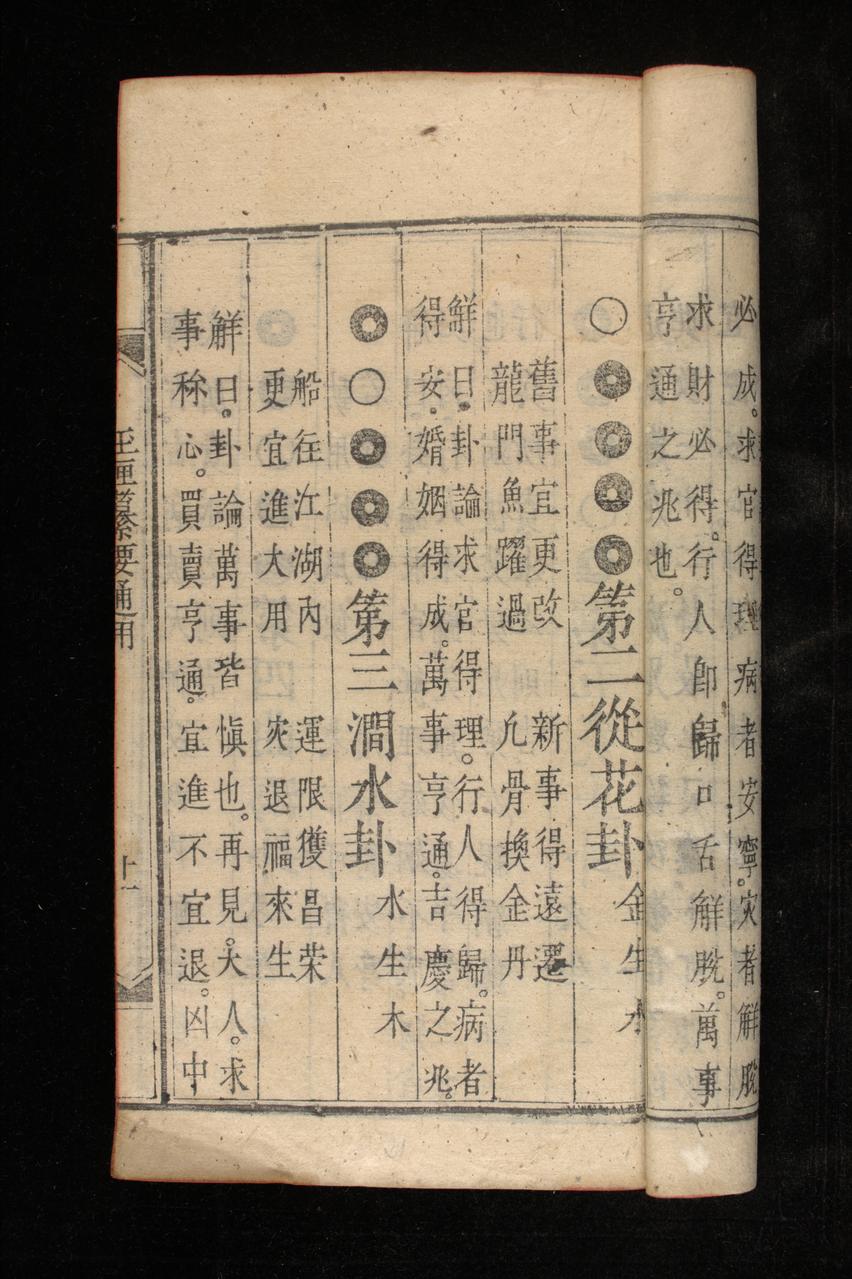 必成。求官得理病者安寧。灾者解脫
求財必得。行人卽歸口舌解脫。萬事
亨通之兆也。
○第二從花卦 金生水
舊事宜更改 新事得遠遷
龍門魚躍過 凢骨換金丹
解曰。卦論求官得理。行人得歸。病者
得安。婚姻得成。萬事亨通。吉慶之兆。
○第三澗水卦 水生木
船往江湖內 運限獲昌荣
更宜進大用 灾退福來生
解曰。卦論萬事皆愼也。再見。大人。求
事称心。買賣亨通。宜進不宜退。凶中
玉匣 要通用
十一